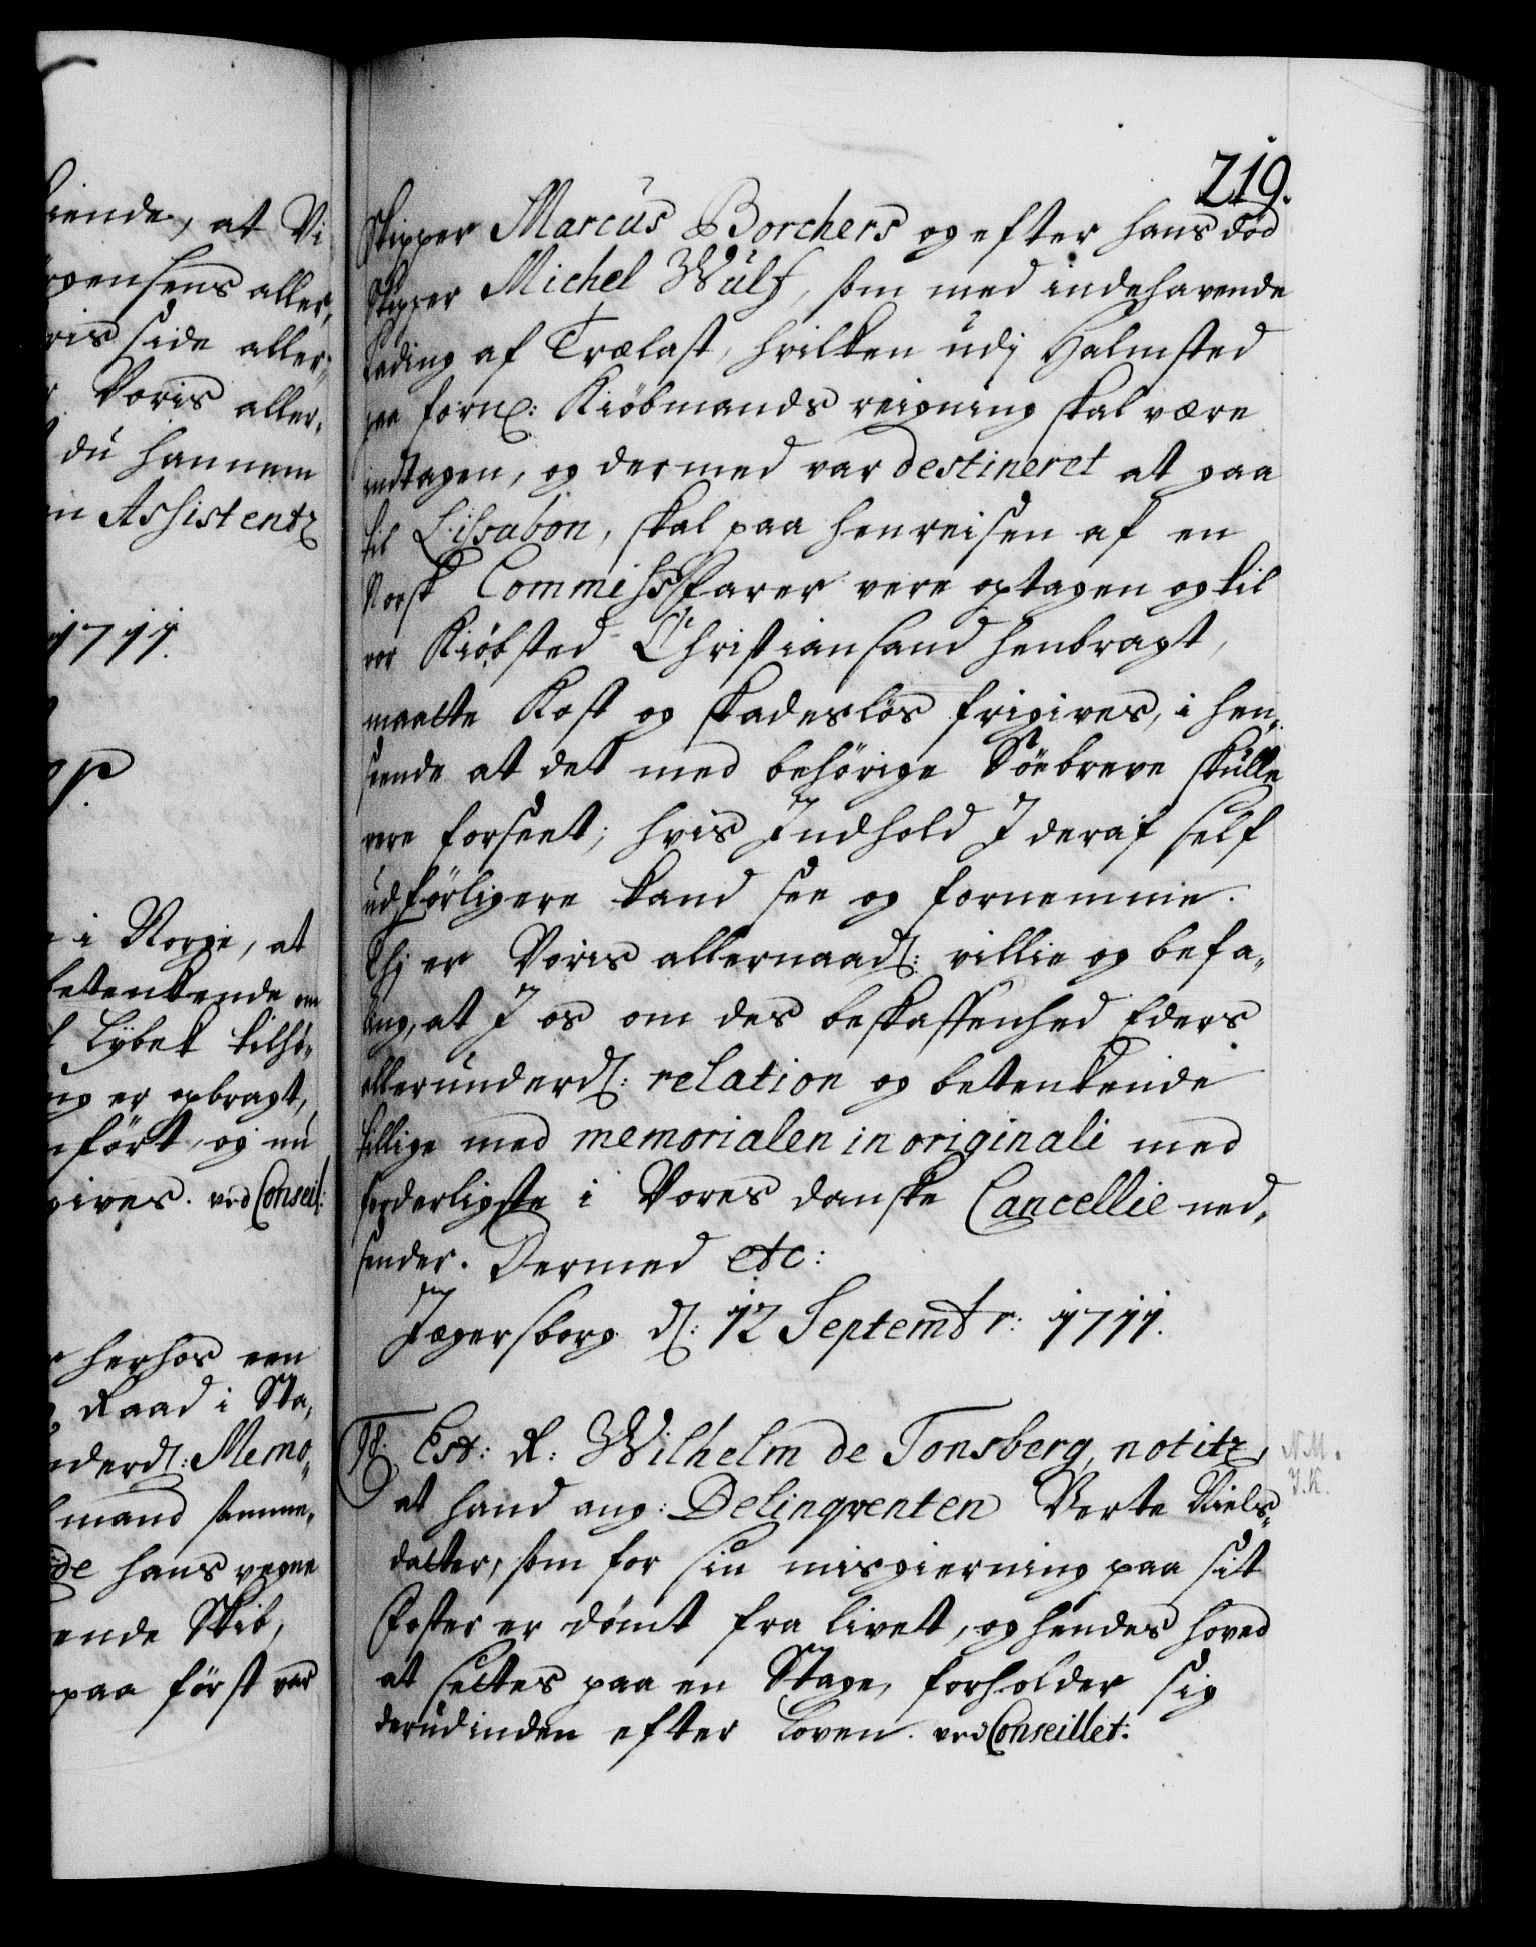 iende, at Vi
vensens aller,
ris side aller,
Voris aller,
du hannem
n Assistentz
1711.
p.
i Norge, at
betenkende om
Lybek tilhö,
ng er opbragt,
fört, og nu
gives. ved Conseil:
herhos een
Raad i Sta,
nderd: Memo,
mand samme,
de hans vegne
ende Skib,
paa först var
219.
Skipper Marcus Borchers og efter hans död
Skipper Michel Wulf, som med indehavende
lading af Trælast, hvilken udj Halmsted
paa forne: Kiöbmands reigning skal være
indtagen, og dermed var destineret at gaa
til Lissabon, skal paa henreisen af en
Norsk Commissfarer vere optagen og til
vor Kiöbsted Christiansand henbragt,
maatte Kost og skadeslös frigives, i hen,
seende at det med behörige Söebreve skulle
vere forseet; hvis Indhold I deraf self
udförligere kand see og fornemme.
Thj er Voris allernaad: villie og befa,
ling, at I os om des beskaffenhed Eders
allerunderd: relation og betenkende
tillige med memorialen in originali med
forderligste i Vores danske Cancellie ned,
sender. Dermed etc:
Jægersborg d: 12 Septembr: 1711.
98. Est: R: Wilhelm de Tonsberg, notitz,
N.M.
J.K.
at hand ang: Delinqventen Berte Niels,
datter, som for sin misgierning paa sit
Foster er dömt fra livet, og hendes hoved
at settes paa en Stage, forholder sig
derudinden efter Loven. ved Conseillet: